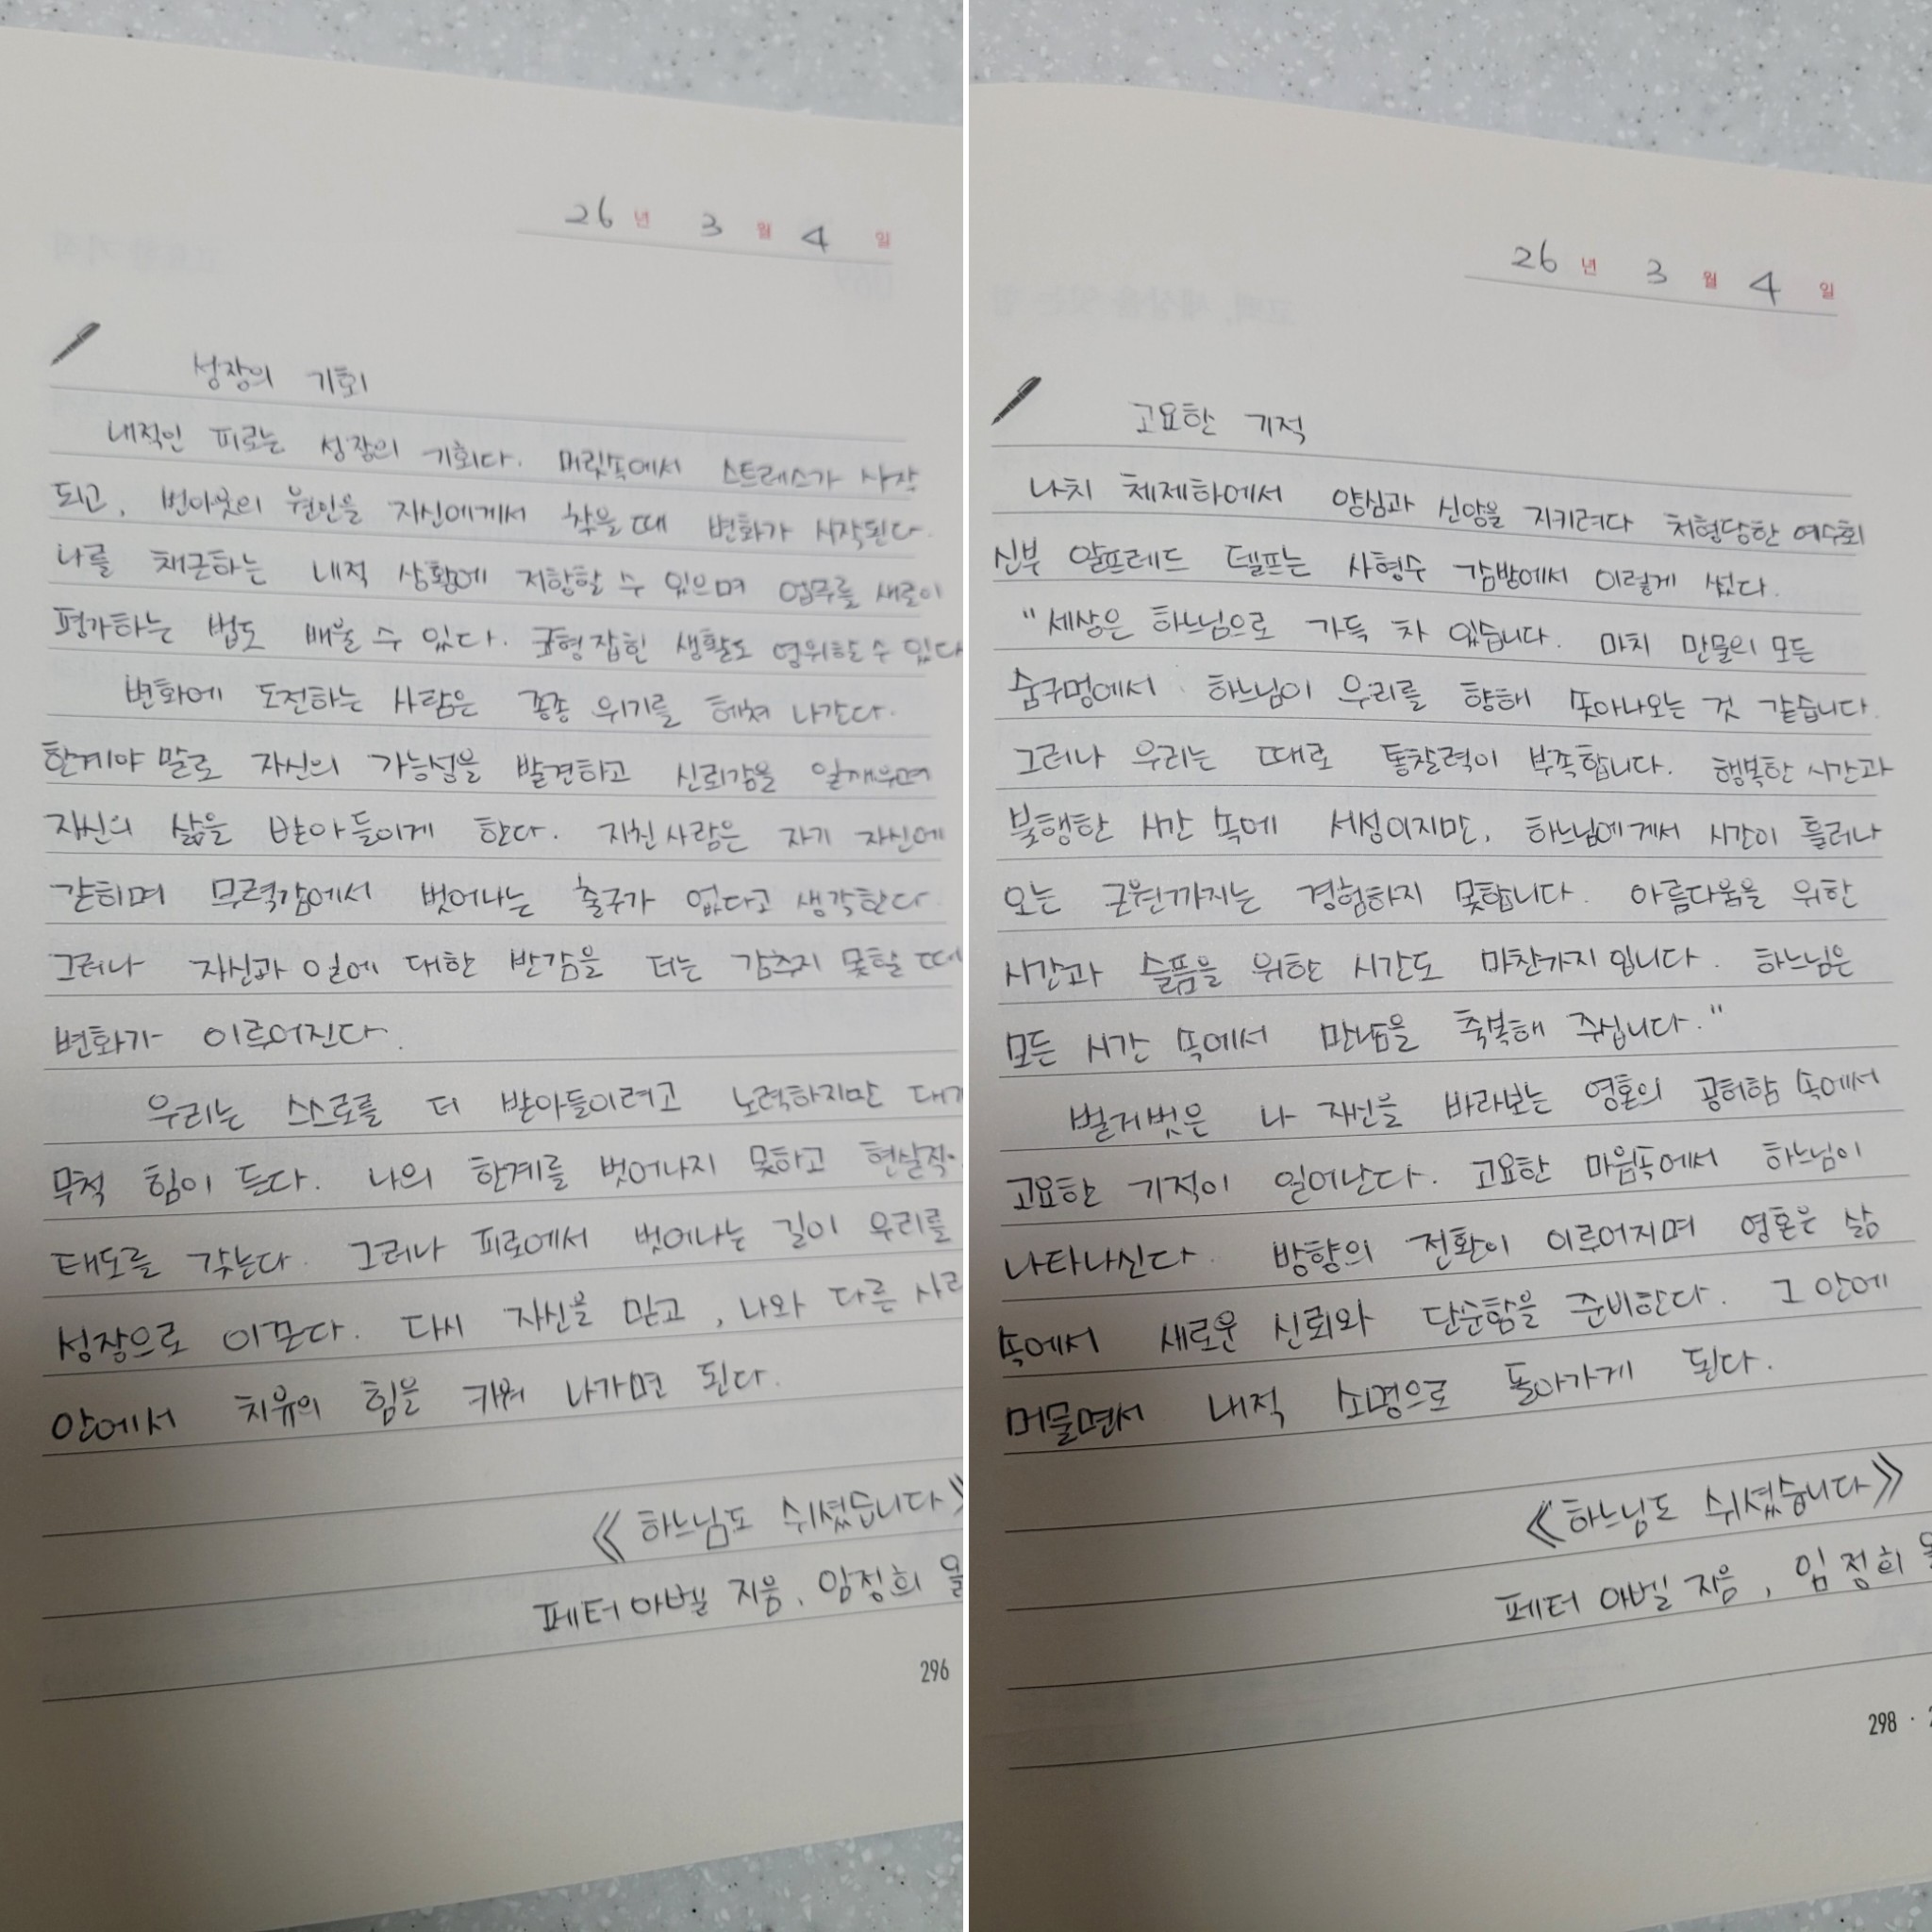 26 년 3 월 4 일
성장의 기회
내적인 피로는 성장의 기회다. 머릿속에서 스트레스가 시작
되고, 번아웃의 원인을 자신에게서 찾을 때 변화가 시작된다.
나를 채근하는 내적 상황에 저항할 수 있으며 업무를 새로이
평가하는 법도 배울 수 있다. 균형 잡힌 생활도 영위할 수 있다
변화에 도전하는 사람은 종종 위기를 헤쳐 나간다.
한계야 말로 자신의 가능성을 발견하고 신뢰감을 일깨우며
자신의 삶을 받아들이게 한다. 지친 사람은 자기 자신에
갇히며 무력감에서 벗어나는 출구가 없다고 생각한다.
그러나 자신과 일에 대한 반감을 더는 감추지 못할 때
변화가 이루어진다.
우리는 스스로를 더 받아들이려고 노력하지만
무척 힘이 든다. 나의 한계를 벗어나지 못하고
태도를 갖는다. 그러나 피로에서 벗어나는 길이 우리를
성장으로 이끈다. 다시 자신을 믿고, 나와 다른
안에서 치유의 힘을 키워 나가면 된다.
《하느님도 쉬셨습니다》
페터 아벨 지음, 임정희
296
26 년 3 월 4 일
고요한 기적
나치 체제하에서 양심과 신앙을 지키려다 처형당한 예수회
신부 알프레드 델프는 사형수 감방에서 이렇게 썼다.
"세상은 하느님으로 가득 차 있습니다. 마치 만물의 모든
숨구멍에서 하느님이 우리를 향해 솟아나오는 것 같습니다.
그러나 우리는 때로 통찰력이 부족합니다. 행복한 시간과
불행한 시간 속에 서성이지만, 하느님에게서 시간이 흘러나
오는 근원까지는 경험하지 못합니다. 아름다움을 위한
시간과 슬픔을 위한 시간도 마찬가지입니다. 하느님은
모든 시간 속에서 만남을 축복해 주십니다."
벌거벗은 나 자신을 바라보는 영혼의 공허함 속에서
고요한 기적이 일어난다. 고요한 마음속에서 하느님이
나타나신다. 방향의 전환이 이루어지며 영혼은 삶
속에서 새로운 신뢰와 단순함을 준비한다. 그 안에
머물면서 내적 소명으로 돌아가게 된다.
《하느님도 쉬셨습니다》
페터 아벨 지음, 임정희
298 ·